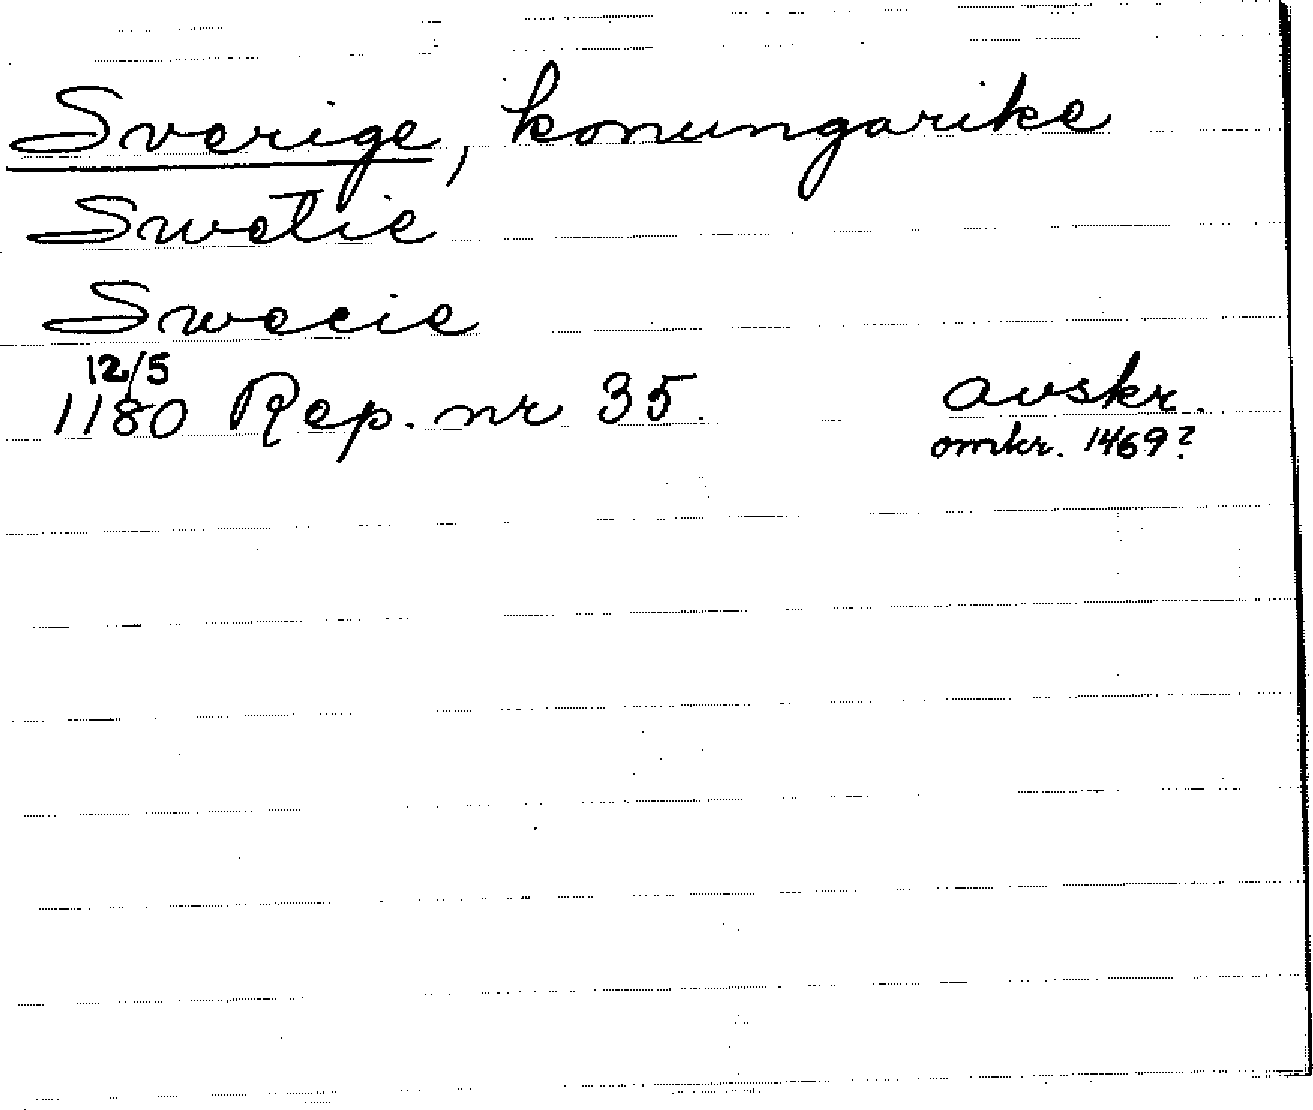 Sverige, konungarike
Swetie
Swecie
12/5
1180 Rep. nr 35. avskr.
omkr. 1469?